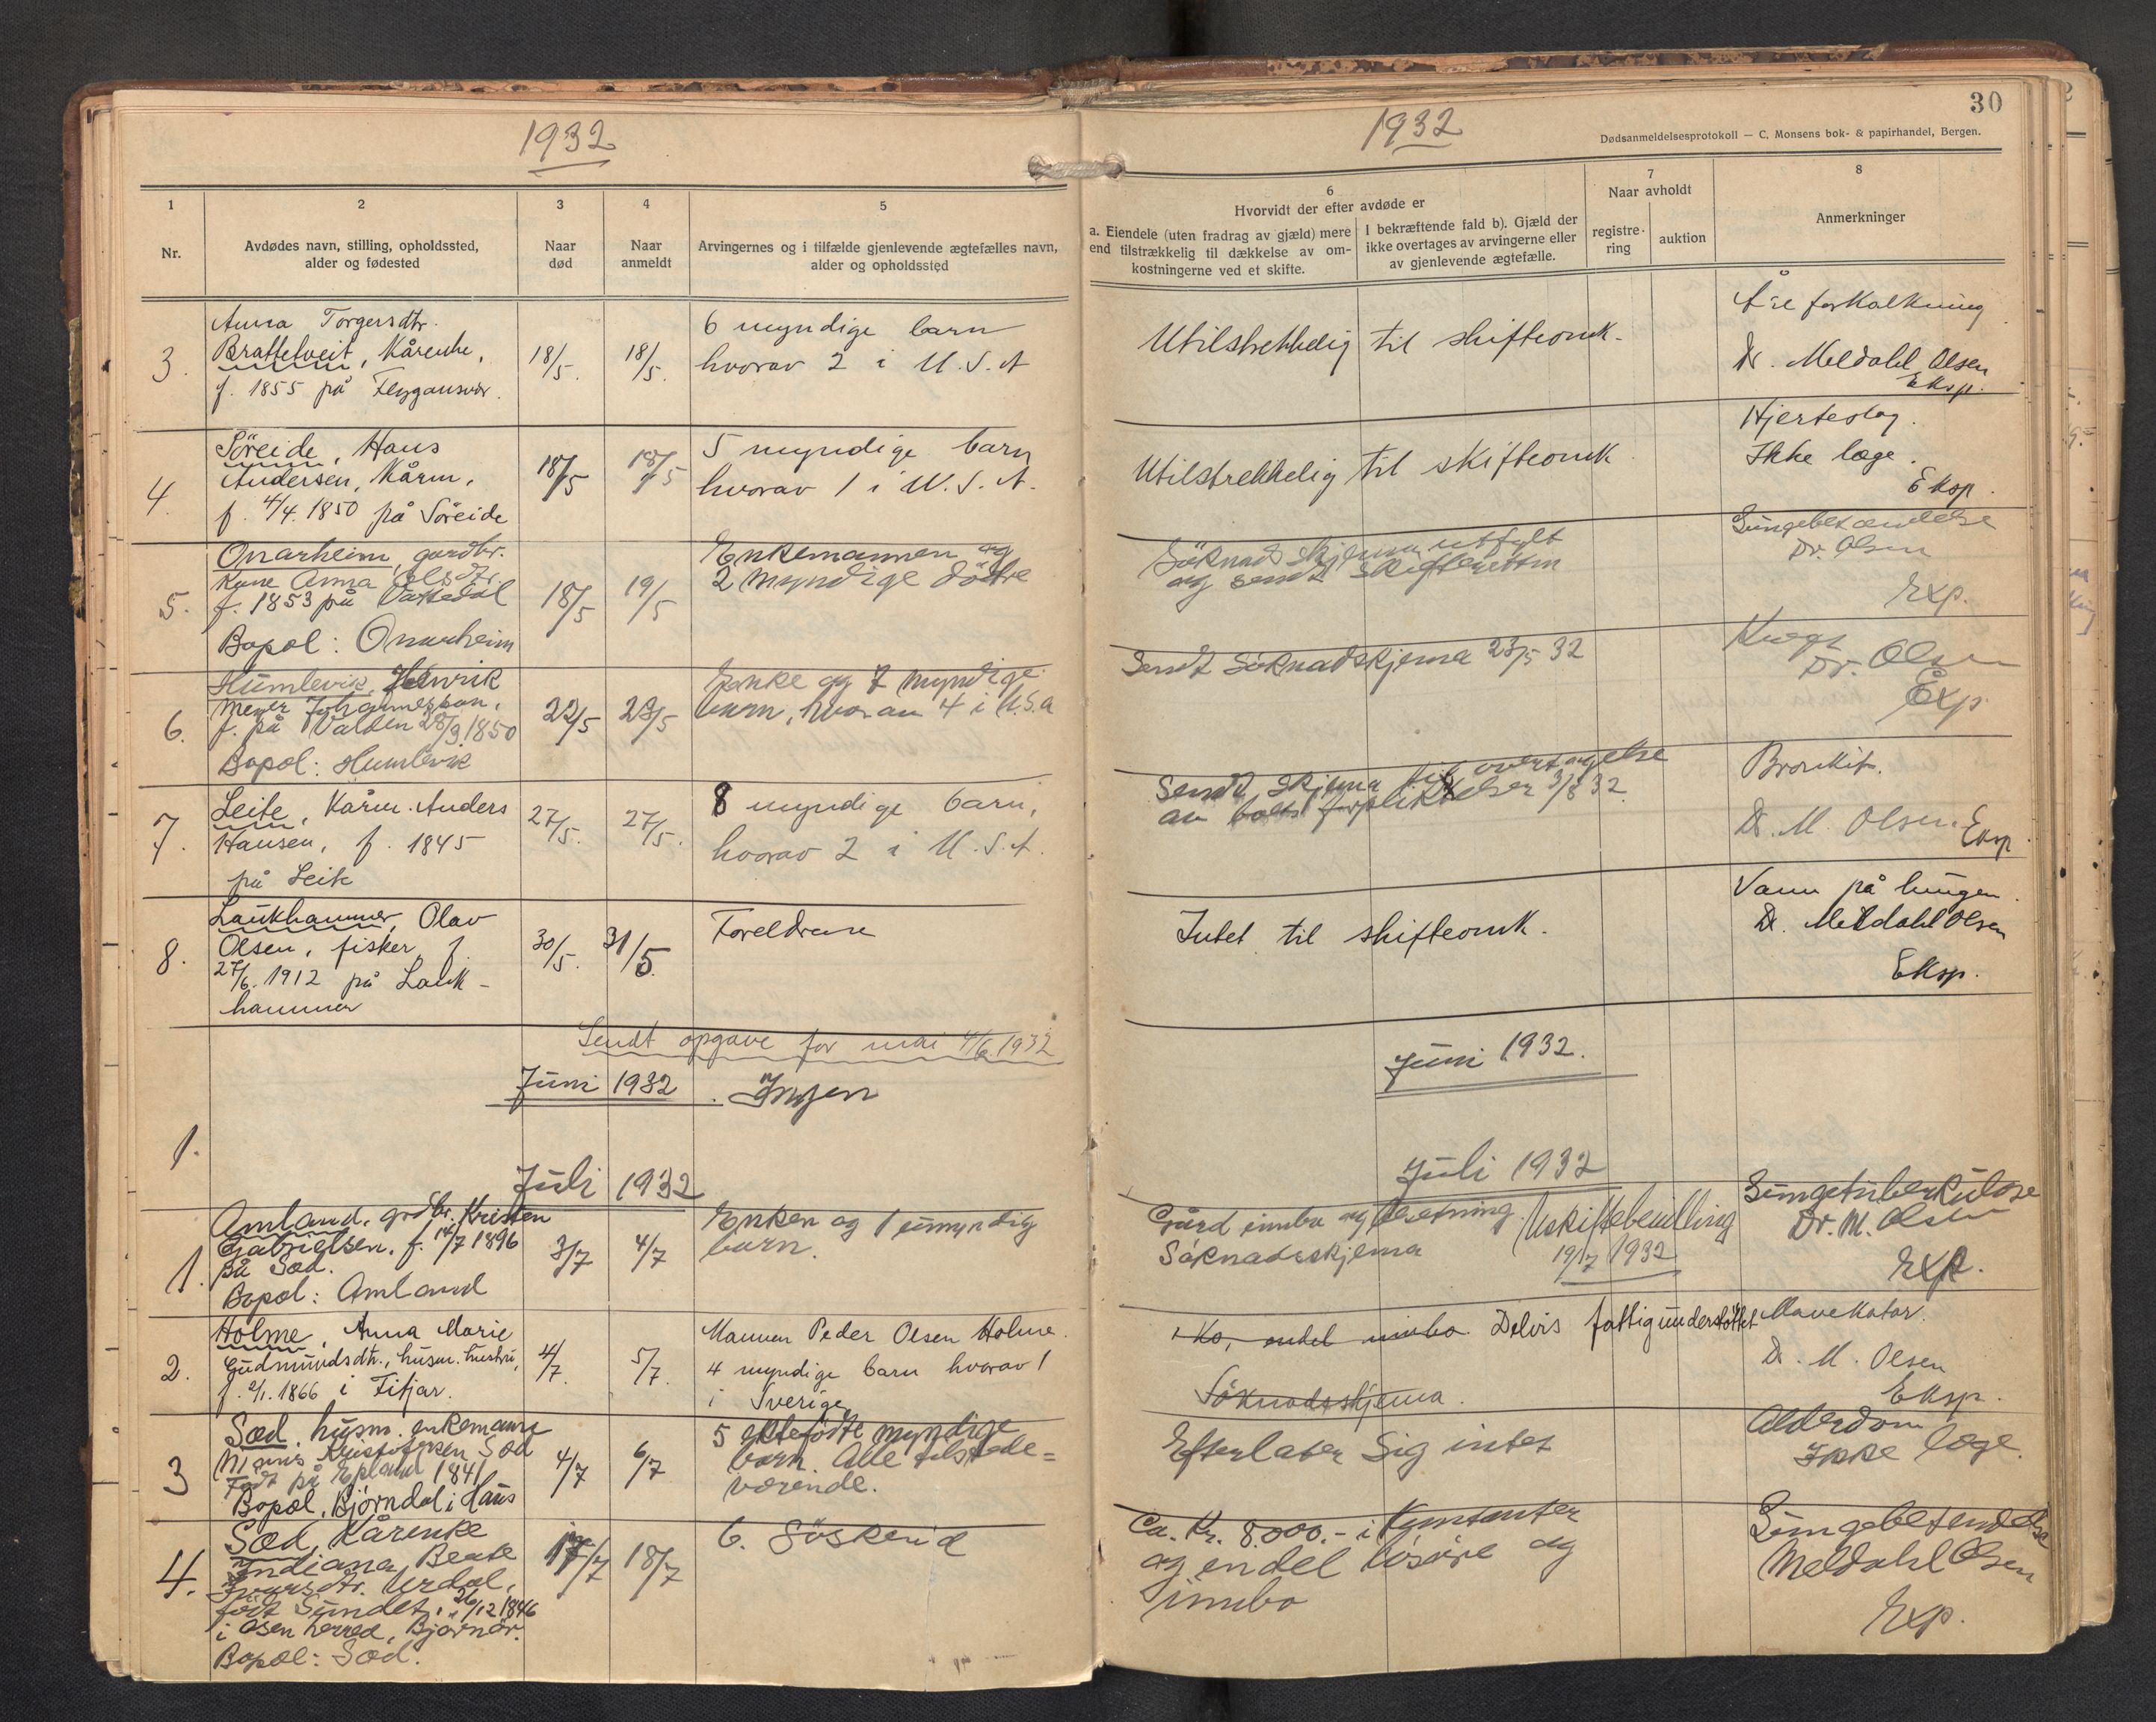 1932
1
2
3
4
5
Nr.
Avdødes navn, stilling, opholdssted,
alder og fødested
Naar
død
Naar
anmeldt
Arvingernes og i tilfælde gjenlevende ægtefælles navn,
alder og opholdssted
3.
Anna Torgersdtr.
Brattetveit, Kårenke,
f. 1855 på Flygansvær.
18/5.
18/5.
6 myndige barn
hvorav 2 i U.S.A
4.
Söreide, Hans
Andersen, Kårm.
f. 4/4. 1850 på Söreide
18/5
18/5
5 myndige barn
hvorav 1 i U.S.A.
5.
Onarheim, gardbr.
Kone Anna Olsdtr.
f. 1853 på Vattedal
Bopæl: Onarheim
18/5
19/5
Enkemannen og
2 myndige döttre
6.
Humlevik, Henrik
Meyer Johannesson,
f. på Valden 28/9 1850
Bopæl: Humlevik
22/5
23/5
Enke og 7 myndige
barn, hvorav 4 i U.S.A
7.
Leite, Kårm. Anders
Hansen, f. 1845
på Leite
27/5.
27/5.
8 myndige barn,
hvorav 2 i U.S.A.
8.
Laukhammer, Olav
Olsen, fisker, f.
27/6. 1912 på Lauk-
hammer
30/5.
31/5.
Foreldrene
Sendt opgave for mai 4/6. 1932
Juni 1932. Ingen
1.
Juli 1932
1.
Amland, grdbr. Kristen
Gabrielsen, f. 14/7 1896
på Sæd.
Bopæl: Amland
3/7
4/7
Enken og 1 umyndig
barn.
2.
Holme, Anna Marie
Gudmundsdtr., husm. hustru,
f. 2/1. 1866 i Fitjar.
4/7.
5/7.
Mannen Peder Olsen Holme.
4 myndige barn hvorav 1
i Sverige.
3
Sæd, husm. enkemann
Kristofersen Sæd
Født på Epland 1841
Bopæl. Björndal i Haus
4/7
6/7
5 ektefödte myndige
barn. Alle tilstede=
værende.
4.
Sæd, Kårenke
Indiana Beate
Ivarsdtr. Urdal,
født Sundet, 26/12 1846
i Osen herred, Bjørnør.
Bopæl: Sæd.
17/7
18/7
6. Söskend
30
1932
Dødsanmeldelsesprotokoll — C. Monsens bok- & papirhandel, Bergen.
6
Hvorvidt der efter avdøde er
a. Eiendele (uten fradrag av gjæld) mere
end tilstrækkelig til dækkelse av om-
kostningerne ved et skifte.
I bekræftende fald b). Gjæld der
ikke overtages av arvingerne eller
av gjenlevende ægtefælle.
7
Naar avholdt
registre-
ring
auktion
8
Anmerkninger
Utilstrekkelig til skifteomk.
Åre forkalkning
Dr. Meldahl Olsen
Eksp.
Utilstrekkelig til skifteomk
Hjerteslag.
Ikke læge.
Eksp.
Söknadskjema utfylt
og sendt skifteretten
Lungebetændelse
Dr. Olsen
Exp.
Sendt Söknadskjema 23/5 32
Dr. Olsen
Exp.
Sendt skjema til overtagelse
av forpliktelser 3/8 32.
Bronkit.
Dr. M. Olsen. Eksp
Intet til skifteomk.
Vann på lungen.
Dr. Meldahl Olsen
Eksp.
Juni 1932.
Juli 1932
Gård innbo og besetning
Söknadsskjema
Uskiftebevilling
19/7 1932
Lungetuberkulose
Dr. M. Olsen
Exp.
1 Ko, endel innbo. Delvis fattigunderstöttet
Söknadsskjema.
Mavekatar.
Dr. M. Olsen
Eksp.
Efterlater sig intet
Alderdom
Ikke læge.
Ca. Kr. 8.000.- i Kontanter
og endel lösöre og
innbo
Lungebetendelse
Meldahl Olsen
Exp.